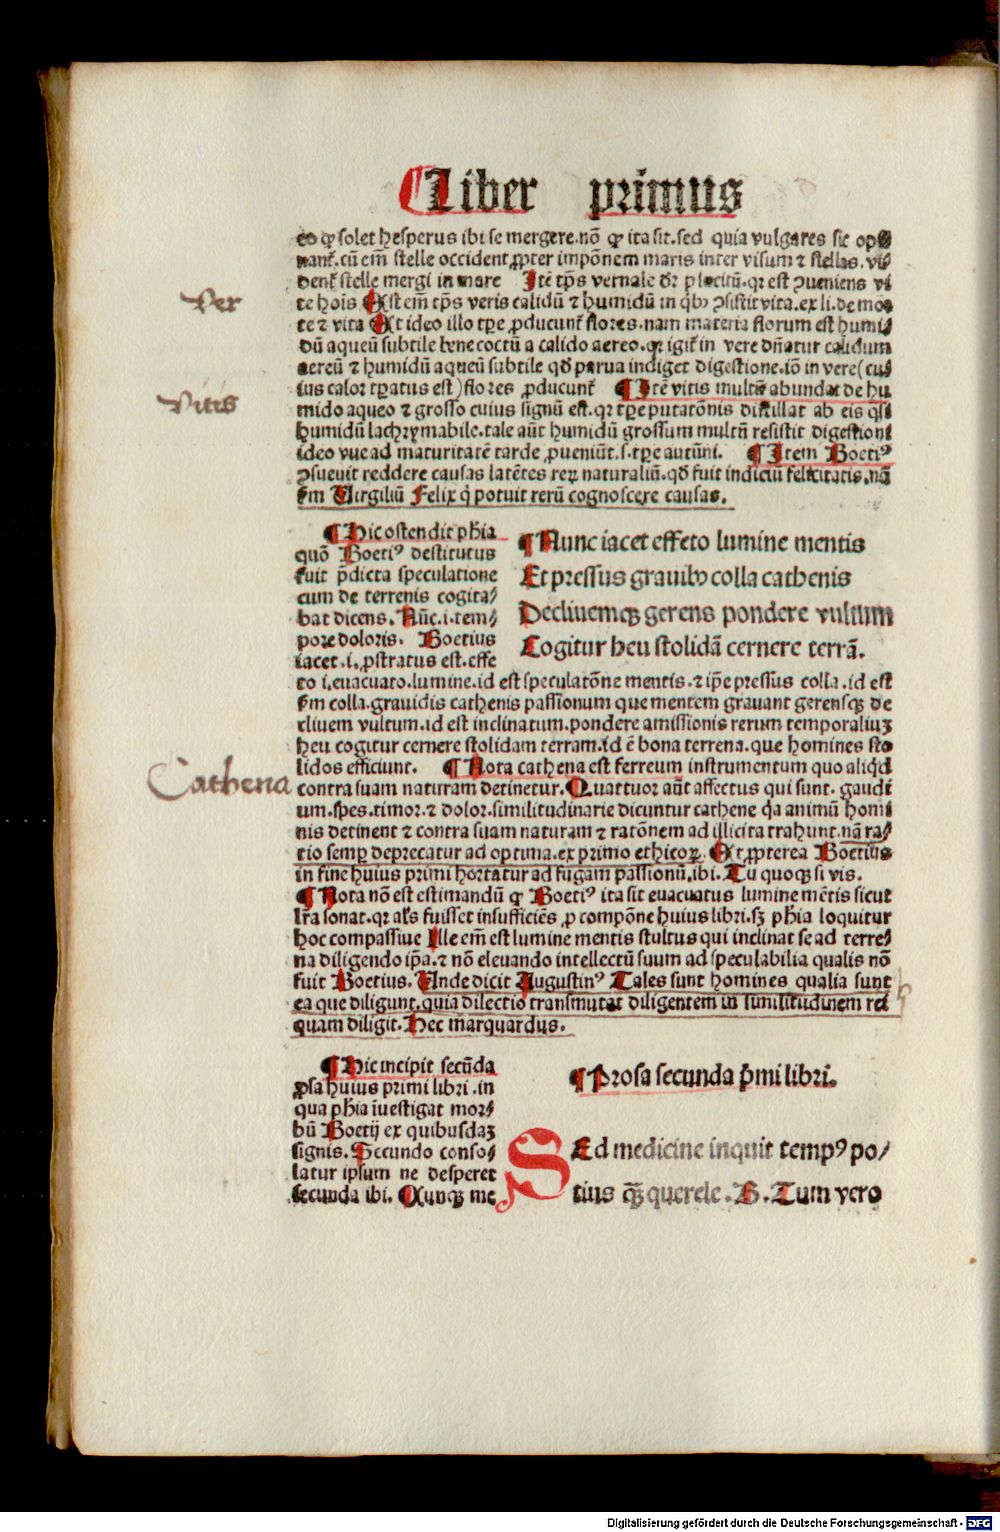 Liber primus
eo qꝛ solet hesperus ibi se mergere. nõ qꝛ ita sit. sed quia vulgares sic opi
nant᷑. cũ em̃ stelle occident ꝓpter impõnem maris inter visum ⁊ stellas. vi⸗
dent᷑ stelle mergi in mare Itẽ tp̃s vernale dr̃ placitũ. qꝛ est ꝯueniens vi
te hoĩs Est em̃ tp̃s veris calidũ ⁊ humidũ in qͥbꝰ ꝯsistit vita. ex li. de mor
te ⁊ vita Et ideo illo tꝑe ꝓducunt᷑ flores. nam materia florum est humi⸗
dũ aqueũ subtile bene coctũ a calido aereo. qꝛ igit᷑ in vere dñatur calidum
aereũ ⁊ humidũ aqueũ subtile qđ parua indiget digestione. iõ in vere (cu⸗
ius calor tꝑatus est) flores ꝓducunt᷑ ¶ Itẽ vitis multũ abundat de hu
mido aqueo ⁊ grosso cuius signũ est. qꝛ tꝑe putatõnis distillat ab eis qͣsi
humidũ lachrymabile. tale aũt humidũ grossum multũ resistit digestioni
ideo vue ad maturitatẽ tarde ꝓueniũt. s. tꝑe autũni. ¶ Item Boetiꝰ
ꝯsueuit reddere causas latẽtes reꝝ naturaliũ. qđ fuit indiciũ felicitatis. nã
ẜm Virgiliũ Felix qͥ potuit rerũ cognoscere causas.
¶ Hic ostendit ph̃ia
quõ Boetiꝰ destitutus
fuit p̃dicta speculatione
cum de terrenis cogita⸗
bat dicens. Nũc. i. tem⸗
pore doloris. Boetius
iacet. i. ꝓstratus est. effe
¶ Nunc iacet effeto lumine mentis
Et pressus grauibꝰ colla cathenis
Decliuemqꝫ gerens pondere vultum
Cogitur heu stolidã cernere terrã.
to i. euacuato. lumine. id est speculatõne mentis. ⁊ ip̃e pressus colla. id est
ẜm colla. grauidis cathenis passionum que mentem grauant gerensqꝫ de
cliuem vultum. id est inclinatum. pondere amissionis rerum temporaliuꝫ
heu cogitur cernere stolidam terram. id ẽ bona terrena. que homines sto
lidos efficiunt. ¶ Nota cathena est ferreum instrumentum quo aliqͥd
contra suam naturam detinetur. Quattuor aũt affectus qui sunt. gaudi
um. spes. timor. ⁊ dolor. similitudinarie dicuntur cathene qͥa animũ homi
nis detinent ⁊ contra suam naturam ⁊ ratõnem ad illicita trahunt. nã ra⸗
tio semꝑ deprecatur ad optima. ex primo ethicoꝝ. Et ꝓpterea Boetius
in fine huius primi hortatur ad fugam passionũ. ibi. Tu quoqꝫ si vis.
¶ Nota nõ est estimandũ qꝛ Boetiꝰ ita sit euacuatus lumine mẽtis sicut
lr̃a sonat. qꝛ al̃s fuisset insufficiẽs ꝓ compõne huius libri. sꝫ ph̃ia loquitur
hoc compassiue Ille em̃ est lumine mentis stultus qui inclinat se ad terre⸗
na diligendo ip̃a. ⁊ nõ eleuando intellectũ suum ad speculabilia qualis nõ
fuit Boetius. Unde dicit Augustinꝰ Tales sunt homines qualia sunt
ea que diligunt. quia dilectio transmutat diligentem in similitudinem rei
quam diligit. Hec marquardus.
¶ Hic incipit secũda
ꝓsa huius primi libri. in
qua ph̃ia ĩuestigat mor⸗
bũ Boetij ex quibusdaꝫ
signis. Secundo conso⸗
latur ipsum ne desperet
secunda ibi. Cunqꝫ me
¶ Prosa secunda p̃mi libri.
SEd medicine inquit tempꝰ po⸗
tius qͣꝫ querele. B. Tum vero
Ver
Vitis
Cathena
Digitalisierung gefördert durch die Deutsche Forschungsgemeinschaft - DFG